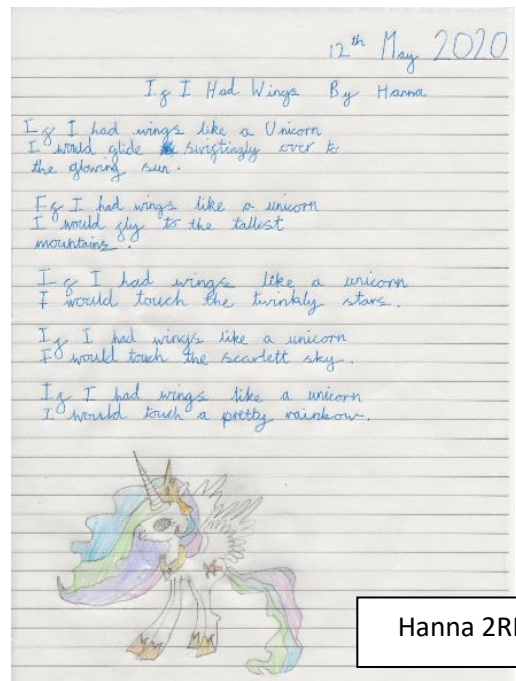 12th May 2020
If I Had Wings By Hanna
If I had wings like a Unicorn
I would glide swiftingly over to
the glowing sun.
If I had wings like a unicorn
I would fly to the tallest
mountains.
If I had wings like a unicorn
I would touch the twinkly stars.
If I had wings like a unicorn
I would touch the scarlett sky.
If I had wings like a unicorn
I would touch a pretty rainbow.
Hanna 2R